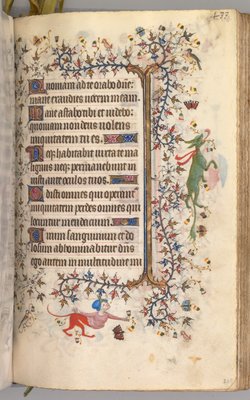 Quoniam ad te orabo dñe:
mane exaudies uocem meam.
Mane astabo tibi et uidebo:
quoniam non deus uolens
iniquitatem tu es.
Neqꝫ habitabit iuxta te ma
lignus neqꝫ permanebunt in
iusti ante oculos tuos.
Odisti omnes qui operant̃
iniquitatem perdes omnes qui
locuntur mendacium.
Uirum sanguinum et do
losum abhominabitur dñs
ego autem in multitudine mi